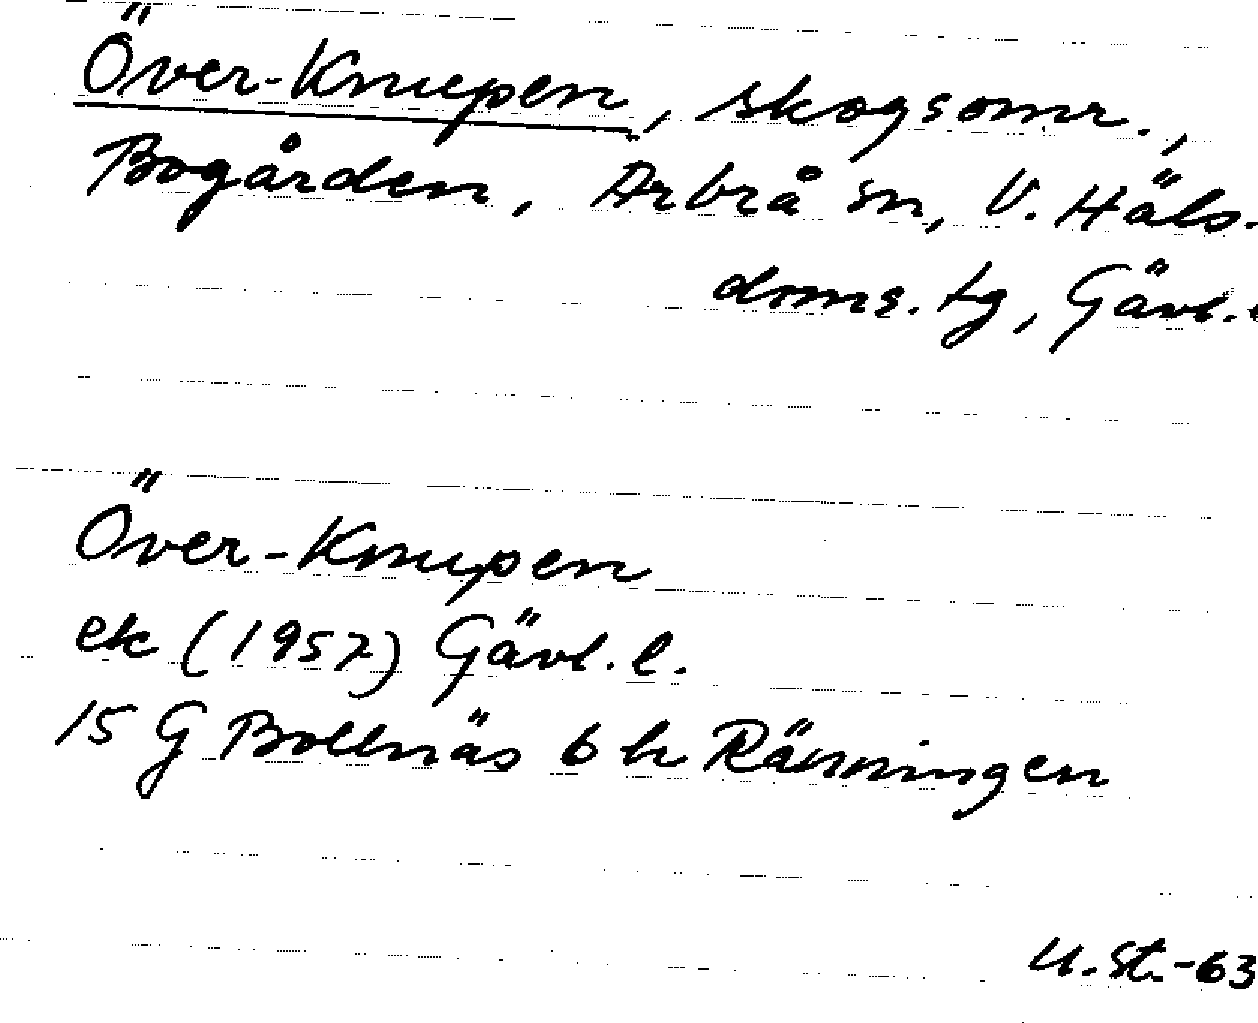 Över-Knupen, skogsomr.,
Bogården, Arbrå sn, V. Häls.
doms. tg, Gävl.
Över-Knupen
ek (1957) Gävl. l.
15 G Bollnäs 6 h Ränningen
U.St.-63